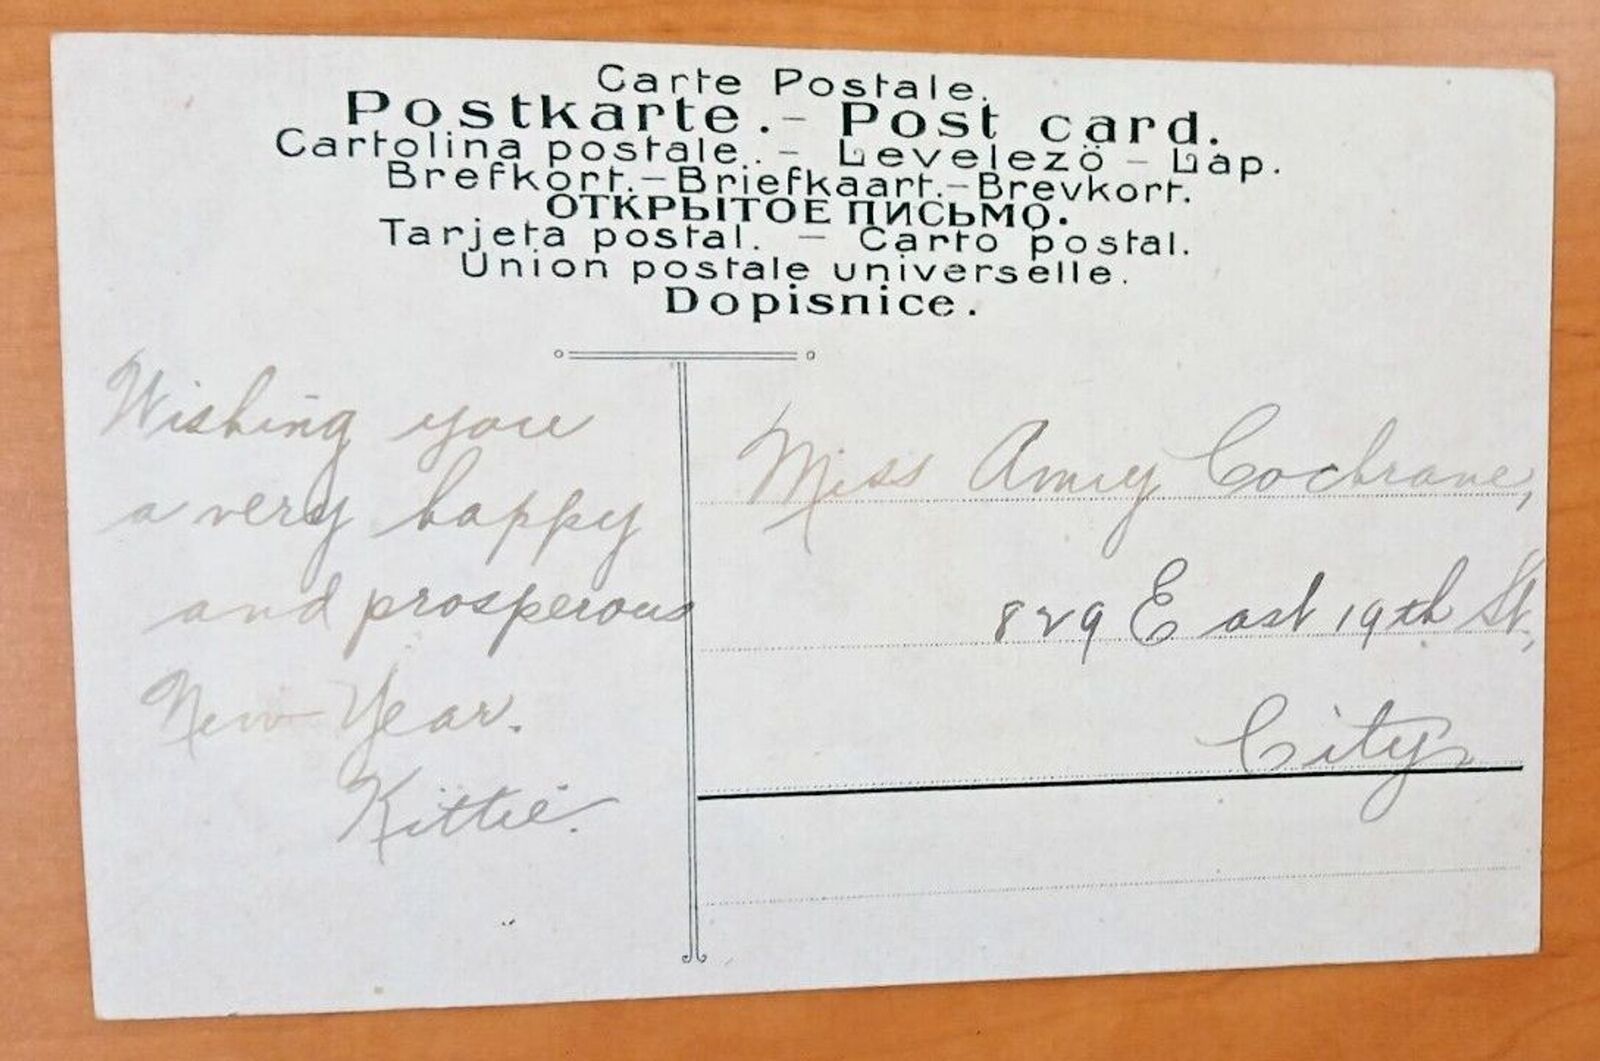 Carte Postale.
Postkarte.- Post card.
Cartolina postale. - Levelezö - Lap.
Brefkort.-Briefkaart.-Brevkort.
ОТКРЫТОЕ ПИСЬМО.
Tarjeta postal. - Carto postal.
Union postale universelle.
Dopisnice.
Wishing you
a very happy
and prosperous
New Year.
Kittie.
Miss Amy Cochrane,
829 East 19th St,
City